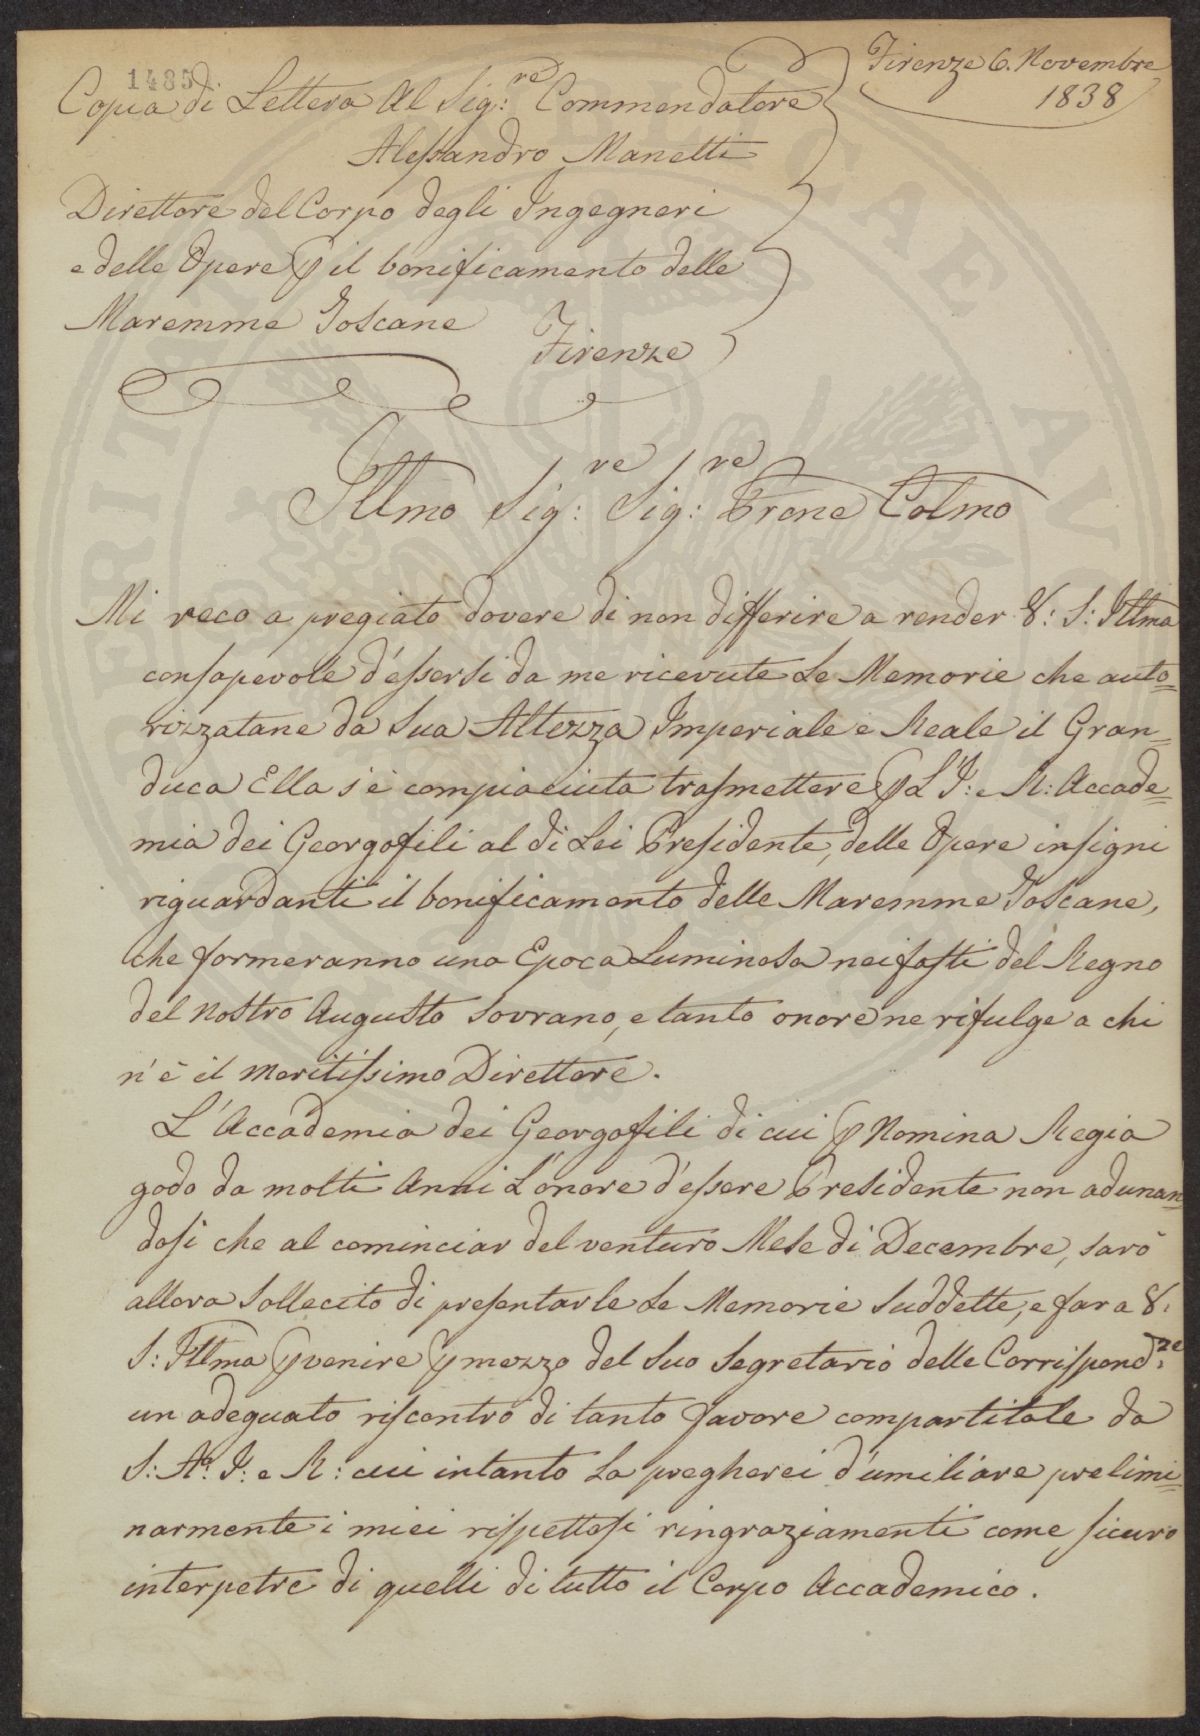 1485.
Firenze 6. Novembre
1838
Copia di Lettera Al Sig:re Commendatore
Alessandro Manetti
Direttore del Corpo degli Ingegneri
e delle Opere p il bonificamento delle
Maremme Toscane
Firenze
Illmo Sig:re Sig:re Prone Colmo
Mi reco a pregiato dovere di non differire a render V: S: Illma
consapevole d'essersi da me ricevute Le Memorie che auto=
rizzatane da Sua Altezza Imperiale e Reale il Gran=
duca Ella s'è compiaciuta trasmettere p L'I: e R: Accade=
mia dei Georgofili al di Lei Presidente, delle Opere insigni
riguardanti il bonificamento delle Maremme Toscane,
che formeranno una Epoca Luminosa nei fasti del Regno
del nostro Augusto Sovrano, e tanto onore ne rifulge a chi
n'è il meritissimo Direttore.
L'Accademia dei Georgofili di cui p Nomina Regia
godo da molti Anni L'onore d'essere Presidente non adunan=
dosi che al cominciar del venturo Mese di Decembre, sarò
allora Sollecito di presentarle Le Memorie Suddette, e far a V:
S: Illma pvenire p mezzo del Suo Segretario delle Corrispond:ze
un adeguato riscontro di tanto favore compartitole da
S: A: I: e R: cui intanto La pregherei d'umiliare prelimi=
narmente i miei rispettosi ringraziamenti come sicuro
interpetre di quelli di tutto il Corpo Accademico.